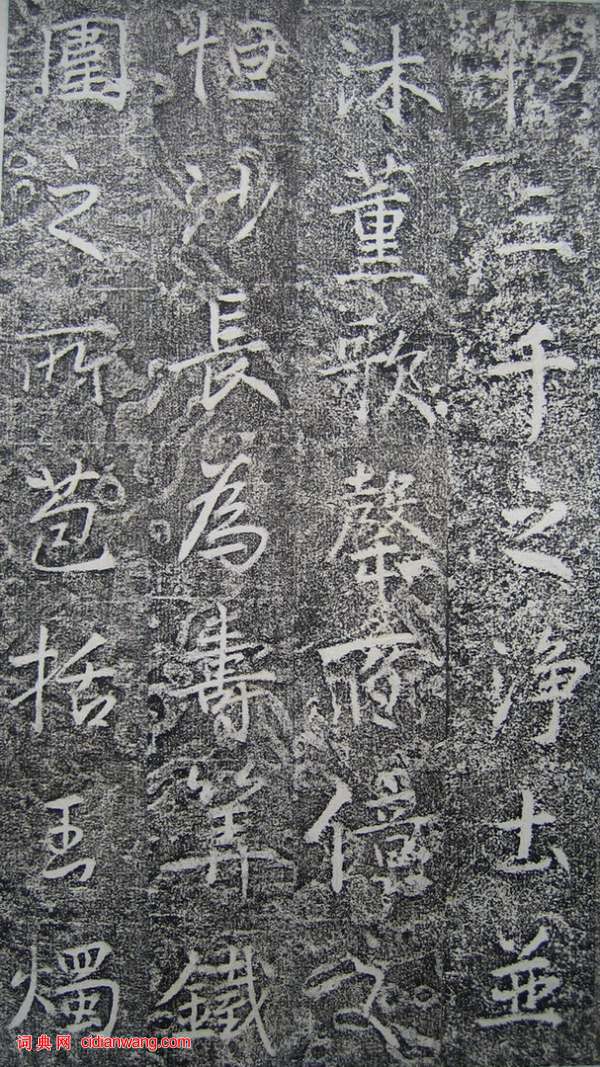 三千之淨土並
沐董歌罄百億之
恒沙長為壽筭鐵
圍之所苞括玉燭
词典网 cidianwang.com